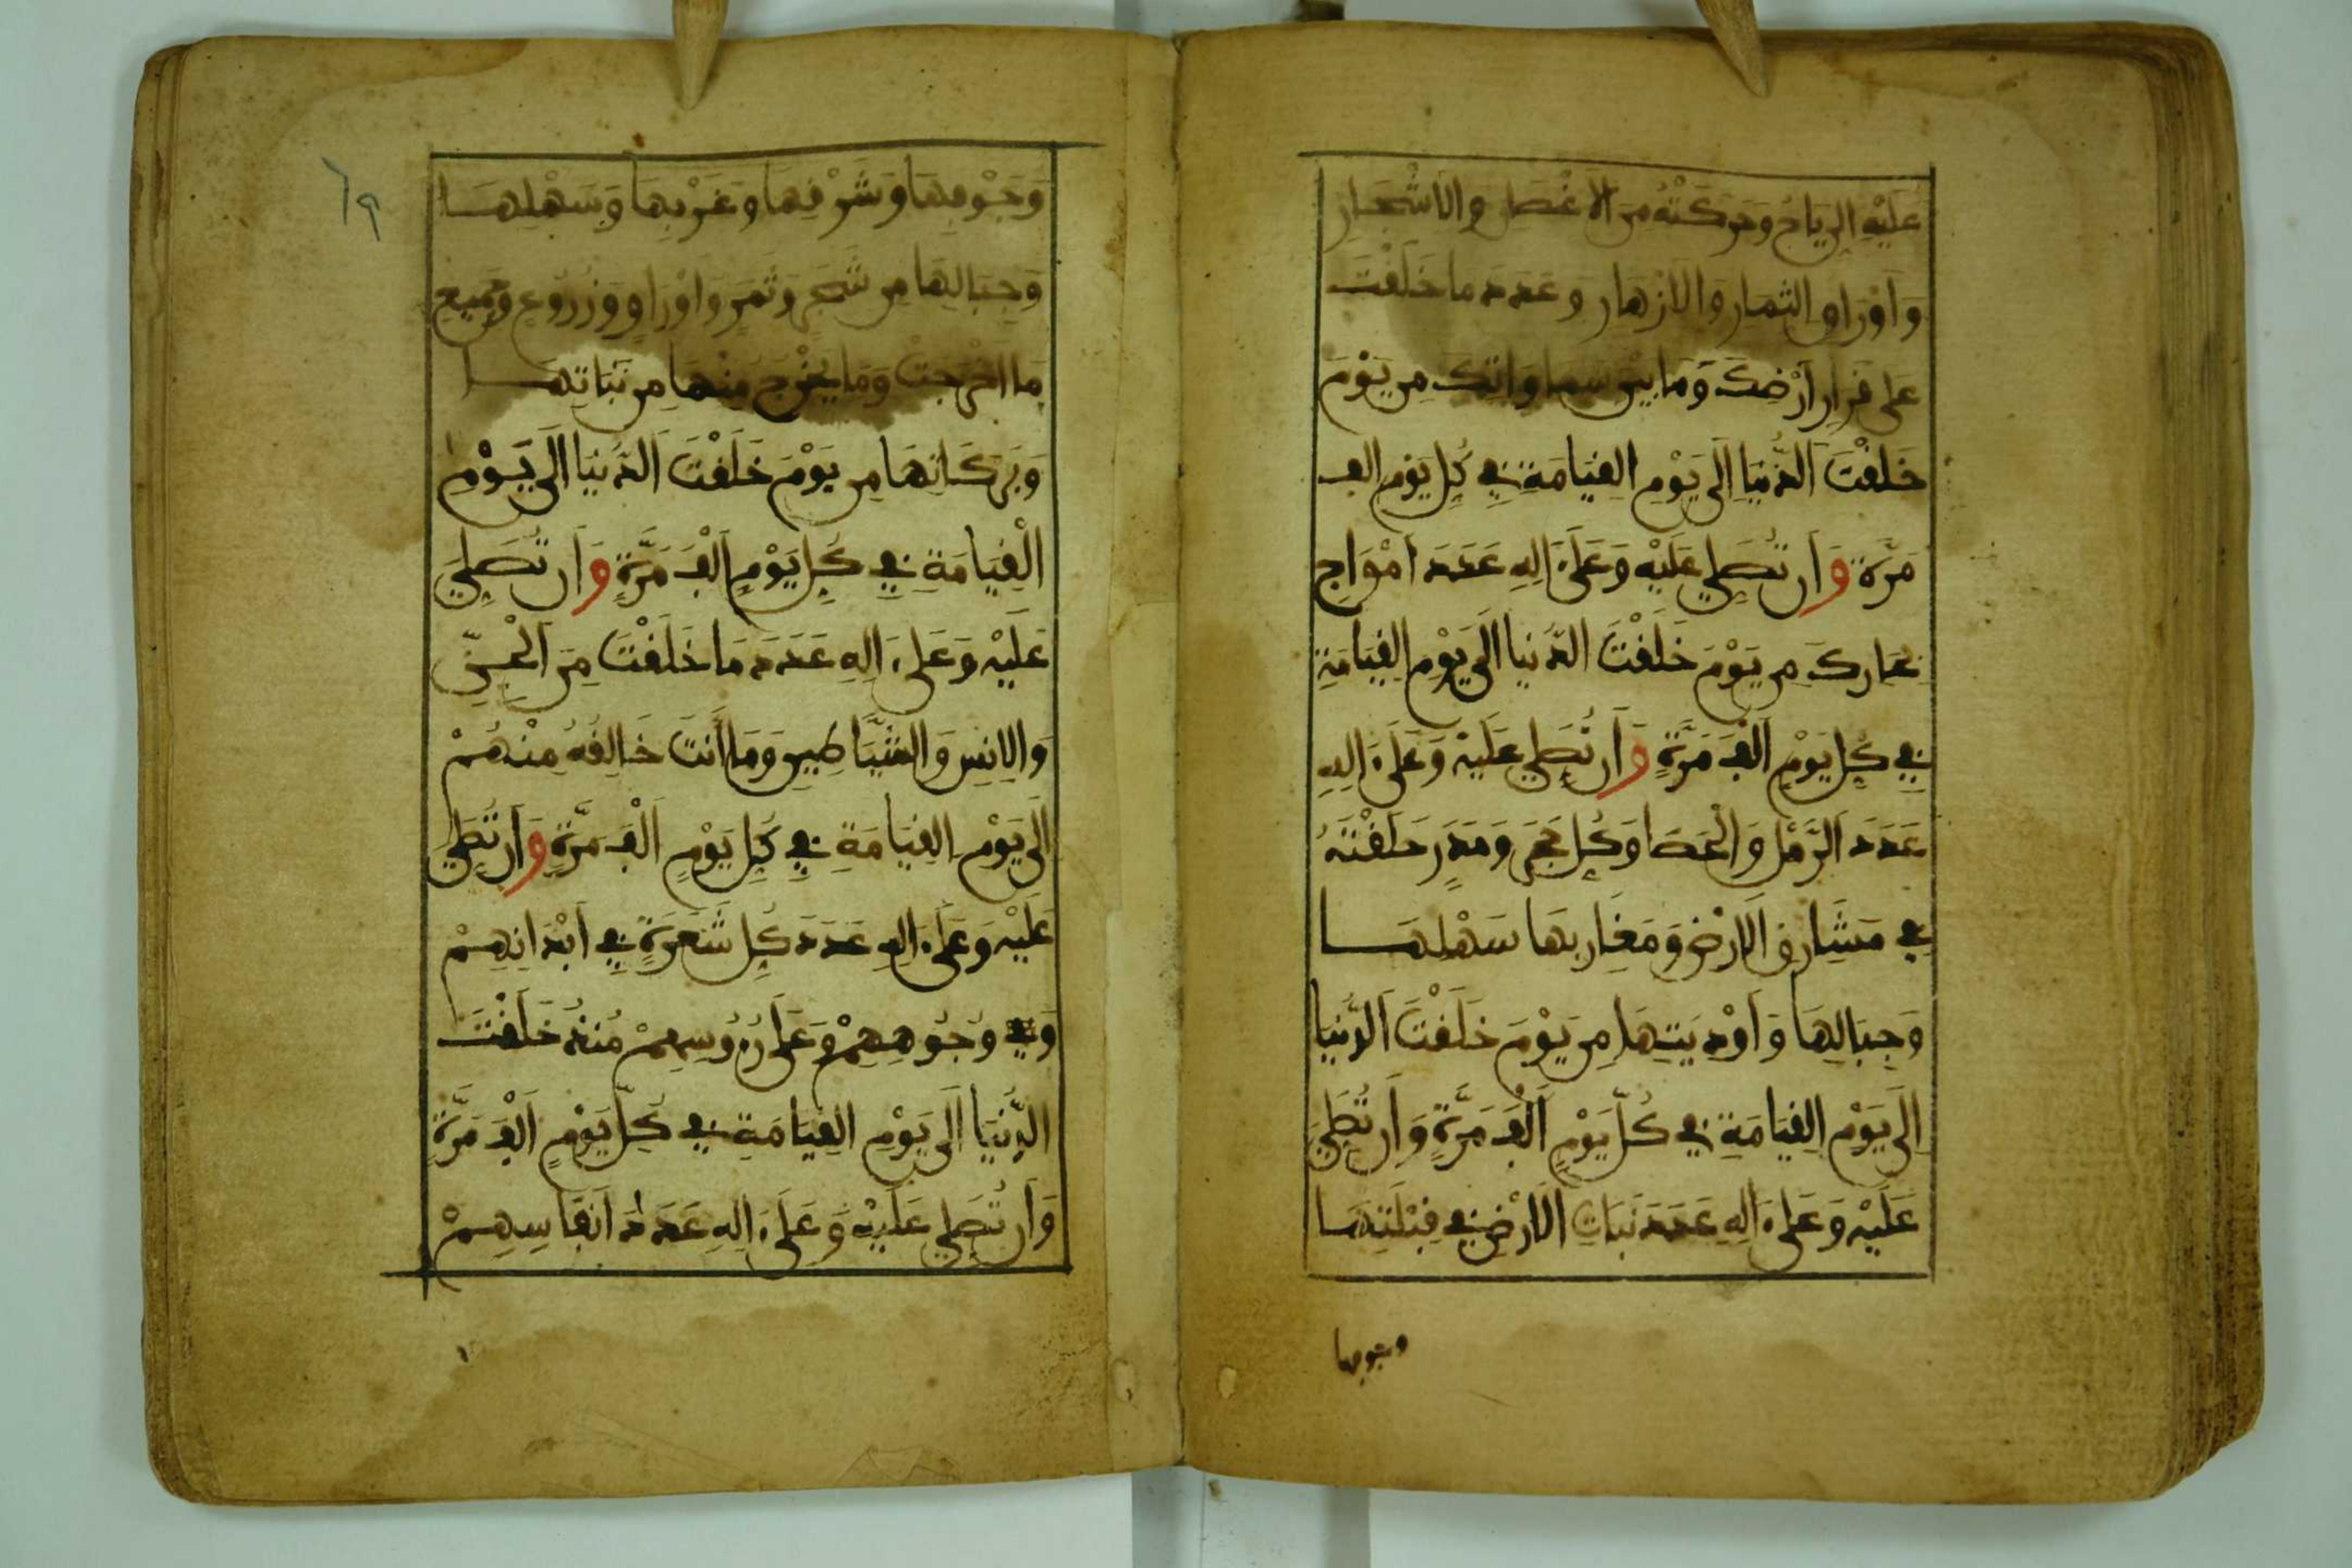 عَلَيْهِ الرِّيَاحُ وَحَرَّكَتْهُ مِنَ الْأَغْصَانِ وَالْأَشْجَارِ
وَأَوْرَاقِ الثِّمَارِ وَالْأَزْهَارِ وَعَدَدَ مَا خَلَقْتَ
عَلَى قَرَارِ أَرْضِكَ وَمَا بَيْنَ سَمَاوَاتِكَ مِن يَوْمَ
خَلَقْتَ الدُّنْيَا إِلَى يَوْمِ الْقِيَامَةِ فِي كُلِّ يَوْمٍ أَلْفَ
مَرَّةٍ وَأَن تُصَلِّيَ عَلَيْهِ وَعَلَى ءَالِهِ عَدَدَ أَمْوَاجِ
بِحَارِكَ مِن يَوْمَ خَلَقْتَ الدُّنْيَا إِلَى يَوْمِ الْقِيَامَةِ
فِي كُلِّ يَوْمٍ أَلْفَ مَرَّةٍ وَأَن تُصَلِّيَ عَلَيْهِ وَعَلَى ءَالِهِ
عَدَدَ الرَّمْلِ وَالْحَصَا وَكُلِّ حَجَرٍ وَمَدَرٍ خَلَقْتَهُ
فِي مَشَارِقِ الْأَرْضِ وَمَغَارِبِهَا سَهْلِهَا
وَجِبَالِهَا وَأَوْدِيَتِهَا مِن يَوْمَ خَلَقْتَ الدُّنْيَا
إِلَى يَوْمِ الْقِيَامَةِ فِي كُلِّ يَوْمٍ أَلْفَ مَرَّةٍ وَأَن تُصَلِّيَ
عَلَيْهِ وَعَلَى ءَالِهِ عَدَدَ نَبَاتِ الْأَرْضِ فِي قِبْلَتِهَا
وجوفها
٦٩
وَجَوْفِهَا وَشَرْقِهَا وَغَرْبِهَا وَسَهْلِهَا
وَجِبَالِهَا مِن شَجَرٍ وَثَمَرٍ وَأَوْرَاقٍ وَزُرُوعٍ وَجَمِيعِ
مَا أَخْرَجَتْ وَمَا يَخْرُجُ مِنْهَا مِن نَبَاتِهَا
وَبَرَكَاتِهَا مِن يَوْمَ خَلَقْتَ الدُّنْيَا إِلَى يَوْمِ
الْقِيَامَةِ فِي كُلِّ يَوْمٍ أَلْفَ مَرَّةٍ وَأَن تُصَلِّيَ
عَلَيْهِ وَعَلَى ءَالِهِ عَدَدَ مَا خَلَقْتَ مِنَ الْجِنِّ
وَالْإِنسِ وَالشَّيَاطِينِ وَمَا أَنتَ خَالِقُهُ مِنْهُمْ
إِلَى يَوْمِ الْقِيَامَةِ فِي كُلِّ يَوْمٍ أَلْفَ مَرَّةٍ وَأَن تُصَلِّيَ
عَلَيْهِ وَعَلَى ءَالِهِ عَدَدَ كُلِّ شَعَرَةٍ فِي أَبْدَانِهِمْ
وَفِي وُجُوهِهِمْ وَعَلَى رُءُوسِهِمْ مُنذُ خَلَقْتَ
الدُّنْيَا إِلَى يَوْمِ الْقِيَامَةِ فِي كُلِّ يَوْمٍ أَلْفَ مَرَّةٍ
وَأَن تُصَلِّيَ عَلَيْهِ وَعَلَى ءَالِهِ عَدَدَ أَنفَاسِهِمْ